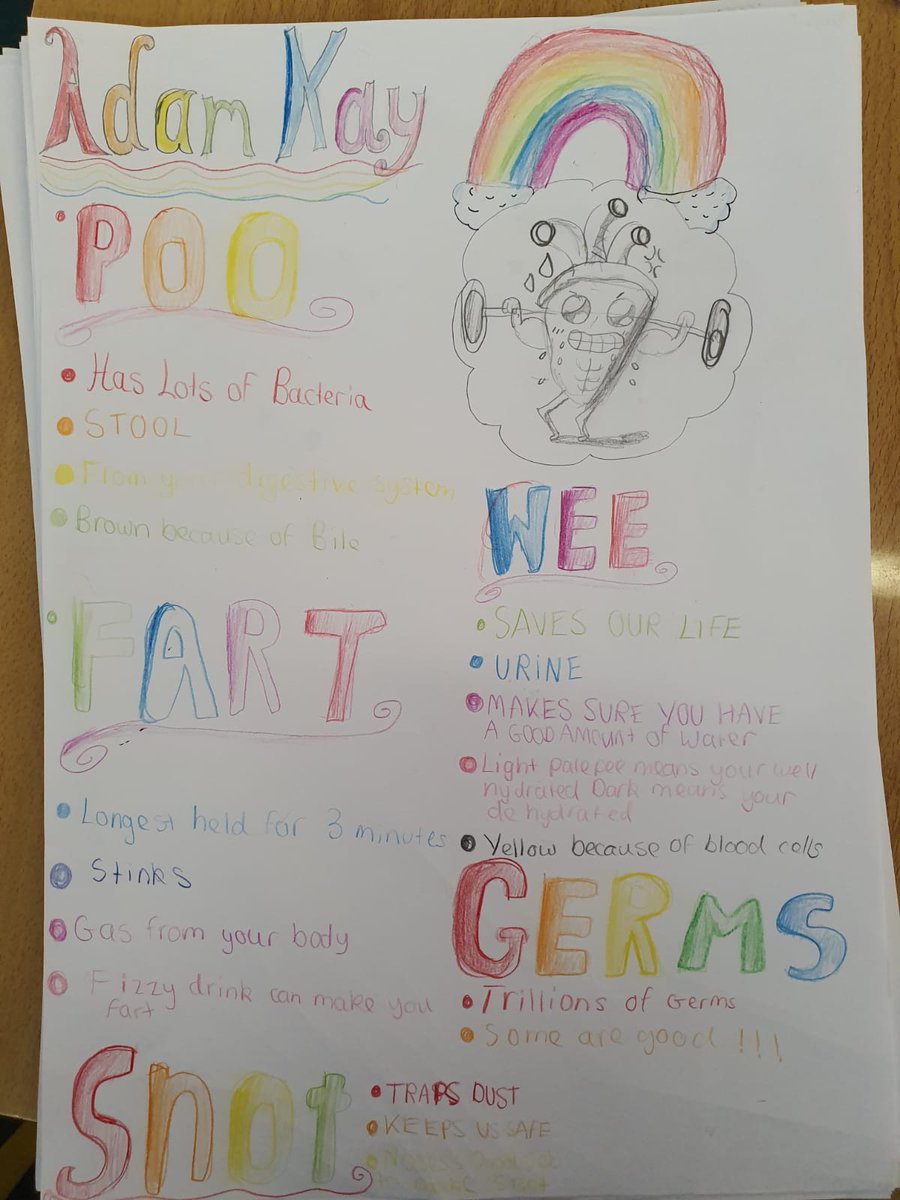 Adam Kay
POO
Has Lots of Bacteria
STOOL
From your digestive system
Brown because of Bile
FART
Longest held for 3 minutes
Stinks
Gas from your body
Fizzy drink can make you
fart
WEE
SAVES OUR LIFE
URINE
MAKES SURE YOU HAVE
A GOOD AMOUNT of Water
Light pale pee means your well
hydrated Dark means your
de hydrated
Yellow because of blood cells
GERMS
Trillions of Germs
Some are good !!!
Snot
TRAPS DUST
KEEPS US SAFE